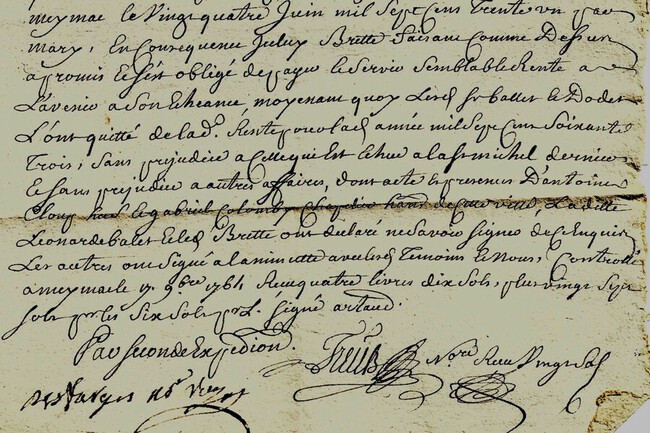 meymac le Vingt quatre Juin mil Sept Cens Trente un par
mary, En Consequence Iceluy Brette faisant Comme Dessus
a promis Et Sest obligé de payer le Servir Semblable Rente a
L'avenir a Son Echeance, moyenant quoy Lesd. Sr ballet le Doder
L'ont quitté de lad. Rente pour lad. année mil Sept Cens Soixante
Trois, Sans prejudice a Celle qui Est Echue a la St michel derniere
Et Sans prejudice a autres affaires, dont acte Es presences D'antoine
Et gabriel Colomby de Cette ville, Ladite
Leonarde balet Et led. Brette ont declaré ne Savoir Signer de Ce Enquis
Les autres ont Signé a la minutte avec lesd. Temoins Et Nous, Controllé
a meymac le 9.bre 1764 Reçu quatre livres dix Sols, plus vingt Sept
Sols pr les Six Sols pr L. Signé artaud.
Par Seconde Expedition.
Nore Reçu Vingt Sols